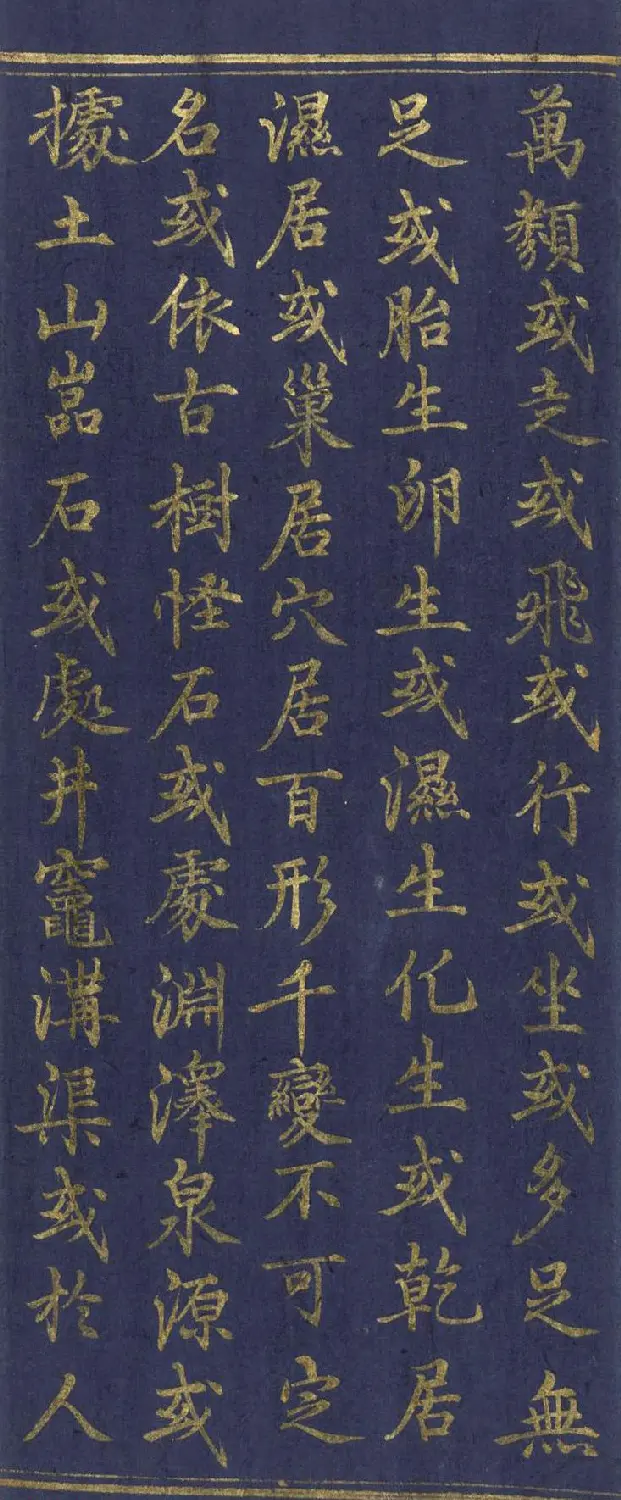 萬類或走或飛或行或坐或多足無
足或胎生卵生或濕生化生或乾居
濕居或巢居穴居百形千變不可定
名或依古樹怪石或處淵澤泉源或
據土山嵓石或處井竈溝渠或於人